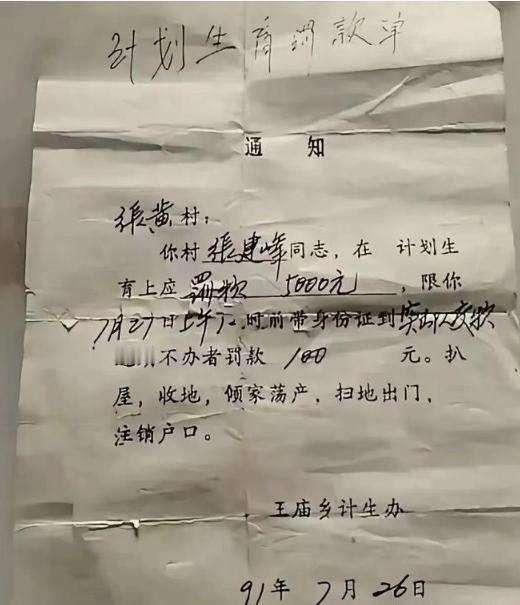 计划生育罚款单
通 知
张黄村：
你村张建峰同志，在 计划生
育上应 罚款 5000元 ，限你
7月27日上午 时前带身份证到 交款
不办者罚款 100 元。扒
屋，收地，倾家荡产，扫地出门，
注销户口。
王庙乡计生办
91年 7 月 26日